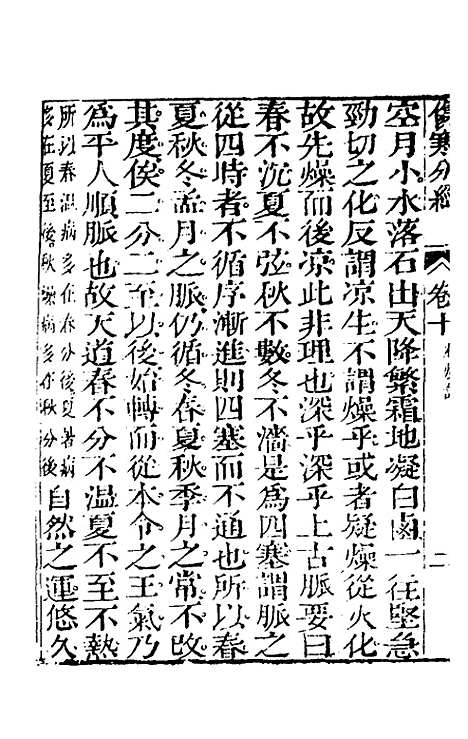 傷寒分經 卷十 秋燥論 二
空月小水落石出天降繁霜地凝白鹵一徃堅急
勁切之化反謂凉生不謂燥乎或者疑燥從火化
故先燥而後凉此非理也深乎深乎上古脉要曰
春不沉夏不弦秋不數冬不濇是爲四塞謂脉之
從四時者不循序漸進則四塞而不通也所以春
夏秋冬孟月之脉仍循冬春夏秋季月之常不改
其度俟二分二至以後始轉而從本令之王氣乃
爲平人順脈也故天道春不分不温夏不至不熱
所以春温病多在春分後夏暑病
多在夏至後秋燥病多在秋分後
自然之運悠久